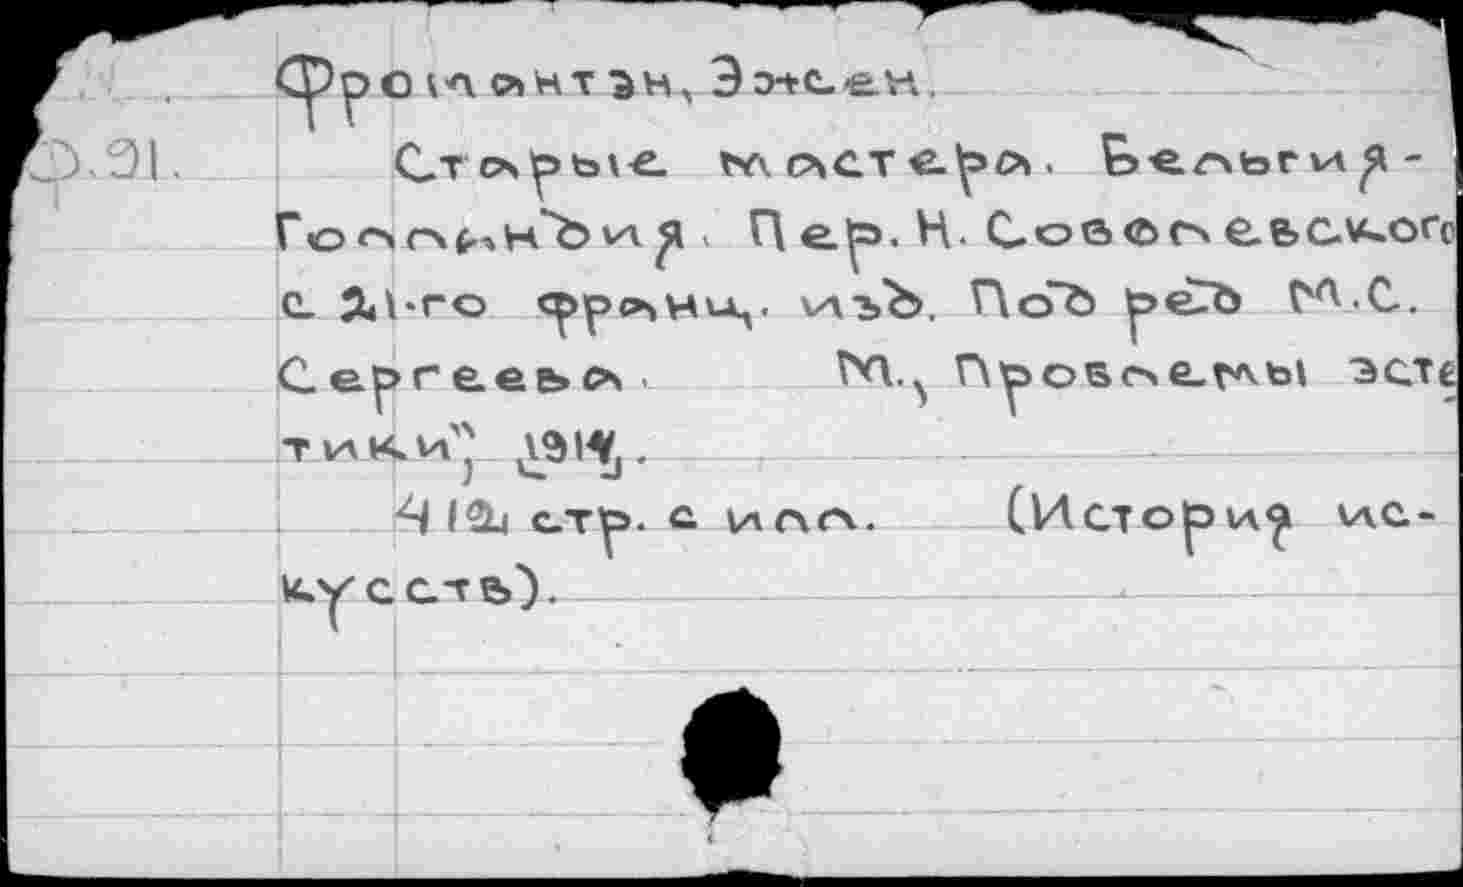 Фромантэн, Эжен.
Ф.91. Старые мастера. Бельгия-
Голландия. Пер. Н. Соболевского
с 21-го франц. изд. Под ред М.С.
Сергеева. М., "Проблемы эсте
тики", [1914].
412 стр. с илл. (История ис-
кусств).